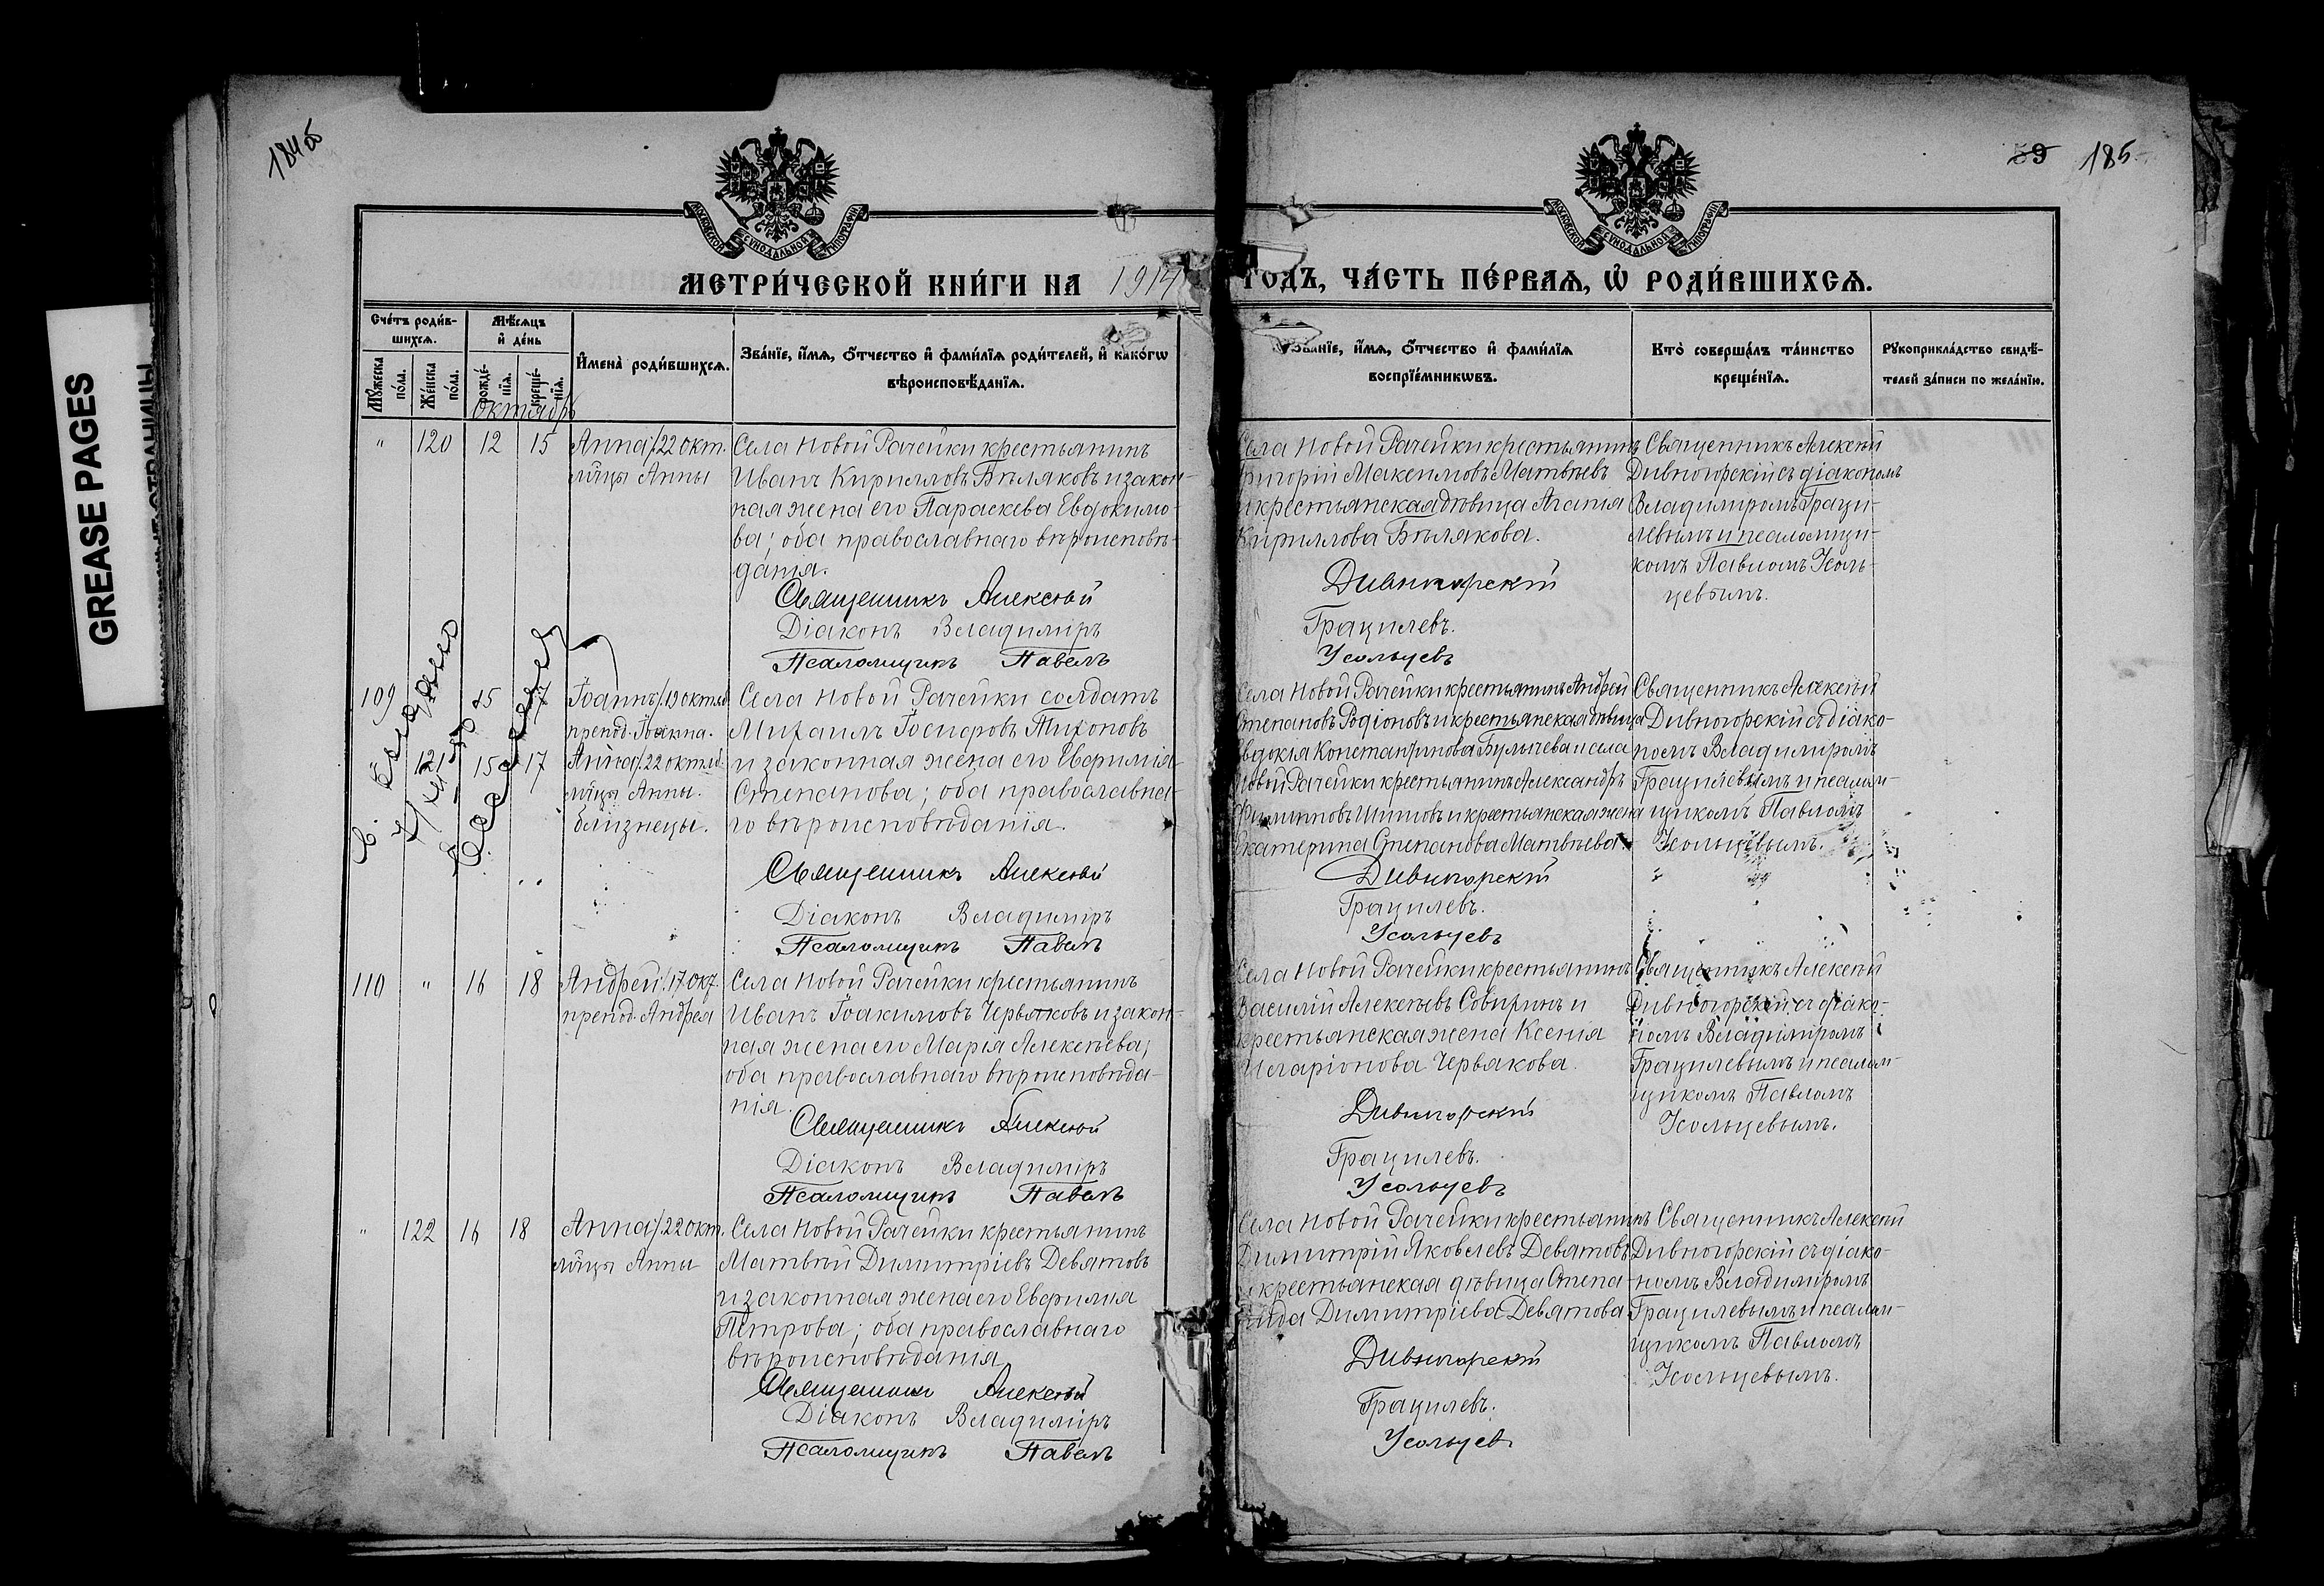 184об
59 185
МОСКОВСКОЙ СѴНОДАЛЬНОЙ ТИПОГРАФІИ
МОСКОВСКОЙ СѴНОДАЛЬНОЙ ТИПОГРАФІИ
GREASE PAGES
МЕТРИ́ЧЕСКОЙ КНИ́ГИ НА 1914 ГОДЪ, ЧА́СТЬ ПЕ́РВАЯ, Ѡ҆ РОДИ́ВШИХСЯ.
Сче́тъ роди́в-
шихся.
Мꙋ́жеска
по́ла.
Же́нска
по́ла.
Мѣ́сяцъ
и҆ де́нь
рожде́-
нїя.
креще́-
нїя.
И҆мена̀ роди́вшихся.
Зва́нїе, и҆́мя, ѻ҆́тчество и҆ фами́лїя роди́телей, и҆ како́гѡ
вѣроисповѣ́данїя.
Зва́нїе, и҆́мя, ѻ҆́тчество и҆ фами́лїя
воспрїе́мникѡвъ.
Кто̀ соверша́лъ та́инство
креще́нїя.
Рꙋкоприкла́дство свидѣ́-
телей за́писи по жела́нїю.
Октябрь
" 120 12 15
Анна/22 окт.
мцы Анны
Села Новой Рачейки крестьянинъ
Иванъ Кирилловъ Бѣляковъ и закон-
ная жена его Параскева Евдокимо-
ва; оба православнаго вѣроисповѣ-
данія.
Священникъ Алексѣй
Діаконъ Владиміръ
Псаломщикъ Павелъ
Села Новой Рачейки крестьянинъ
Григорій Максимовъ Матвѣевъ
и крестьянская дѣвица Агапія
Кириллова Бѣлякова.
Дивногорскій
Грацилевъ.
Усольцевъ
Священникъ Алексѣй
Дивногорскій съ діакономъ
Владиміромъ Граци-
левымъ и псаломщи-
комъ Павломъ Усоль-
цевымъ.
109 15 17
Іоаннъ/19 октяб.
препод. Іоанна.
121 15 17
Анна/22 октяб.
мцы Анны.
близнецы.
Села Новой Рачейки солдатъ
Михаилъ Іосифовъ Тихоновъ
и законная жена его Евфимія
Степанова; оба православна-
го вѣроисповѣданія.
Священникъ Алексѣй
Діаконъ Владиміръ
Псаломщикъ Павелъ
Села Новой Рачейки крестьянинъ Андрей
Степановъ Родіоновъ и крестьянская дѣвица
Евдокія Константинова Булычева и села
Новой Рачейки крестьянинъ Александръ
Филипповъ Шиповъ и крестьянская жена
Екатерина Степанова Матвѣева.
Дивногорскій
Грацилевъ.
Усольцевъ
Священникъ Алексѣй
Дивногорскій съ діако-
номъ Владиміромъ
Грацилевымъ и псалом-
щикомъ Павломъ
Усольцевымъ.
110 " 16 18
Андрей/17 окт.
препод. Андрея
Села Новой Рачейки крестьянинъ
Иванъ Іоакимовъ Червяковъ и закон-
ная жена его Марія Алексѣева;
оба православнаго вѣроисповѣда-
нія.
Священникъ Алексѣй
Діаконъ Владиміръ
Псаломщикъ Павелъ
Села Новой Рачейки крестьянинъ
Василій Алексѣевъ Совиринъ и
крестьянская жена Ксенія
Иларіонова Червякова.
Дивногорскій
Грацилевъ.
Усольцевъ
Священникъ Алексѣй
Дивногорскій съ діако-
номъ Владиміромъ
Грацилевымъ и псалом-
щикомъ Павломъ
Усольцевымъ.
" 122 16 18
Анна/22 окт.
мцы Анны
Села Новой Рачейки крестьянинъ
Матвѣй Димитріевъ Девятовъ
и законная жена его Евфимія
Петрова; оба православнаго
вѣроисповѣданія
Священникъ Алексѣй
Діаконъ Владиміръ
Псаломщикъ Павелъ
Села Новой Рачейки крестьянинъ
Димитрій Яковлевъ Девятовъ
и крестьянская дѣвица Степа-
нида Димитріева Девятова
Дивногорскій
Грацилевъ.
Усольцевъ
Священникъ Алексѣй
Дивногорскій съ діако-
номъ Владиміромъ
Грацилевымъ и псалом-
щикомъ Павломъ
Усольцевымъ.